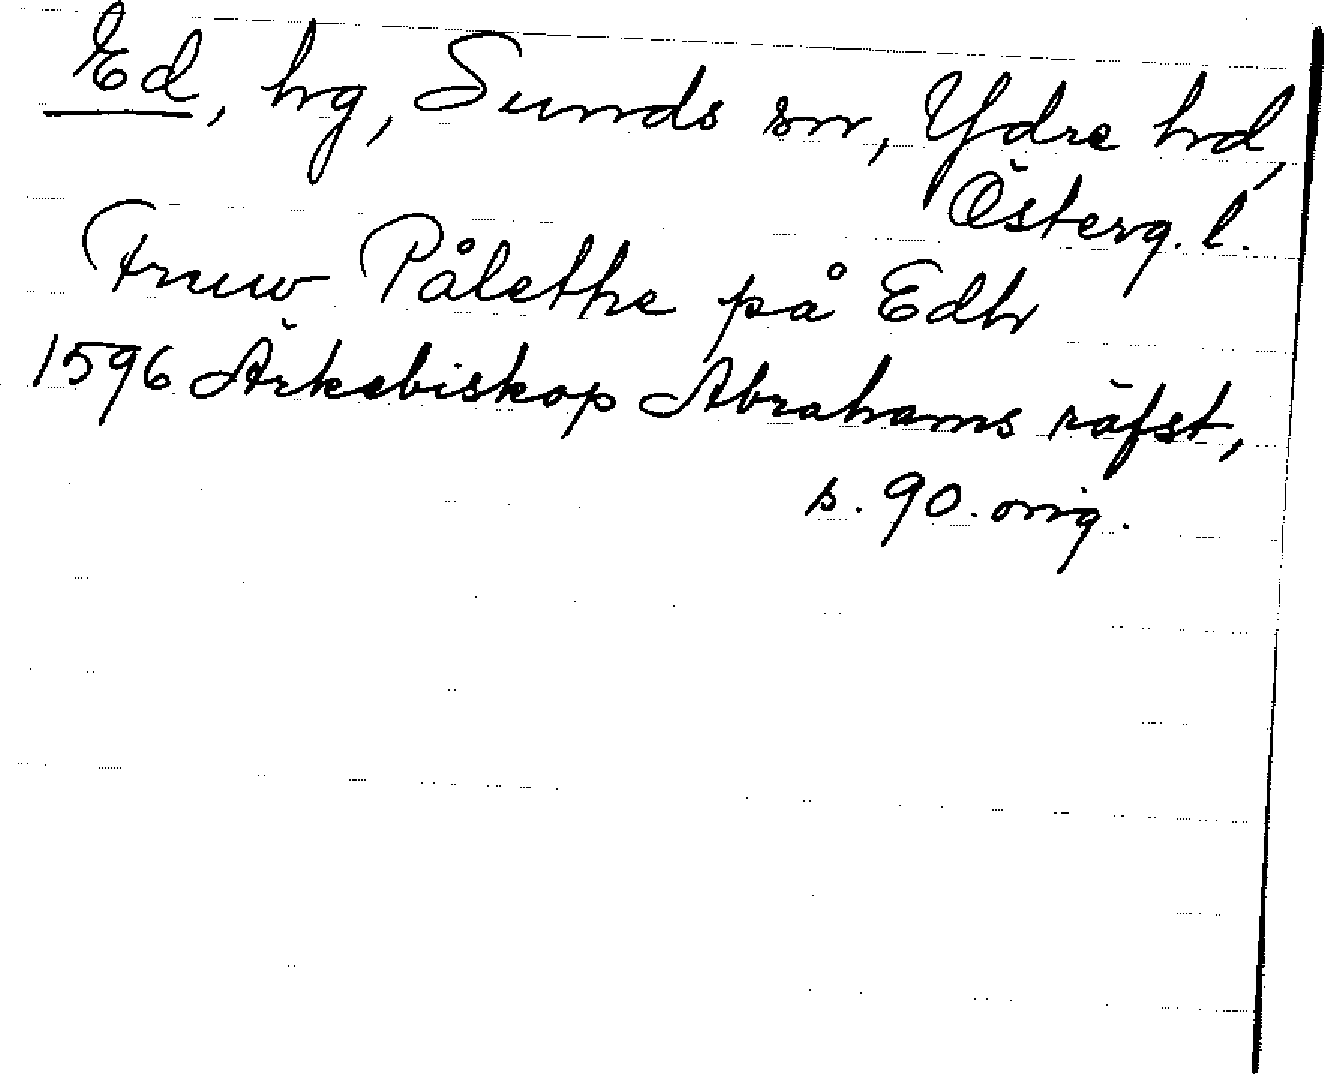 Ed, hg, Sunds sn, Ydre hd,
Österg. l.
Fruw Pålethe på Edh
1596 Ärkebiskop Abrahams räfst,
s. 90. orig.